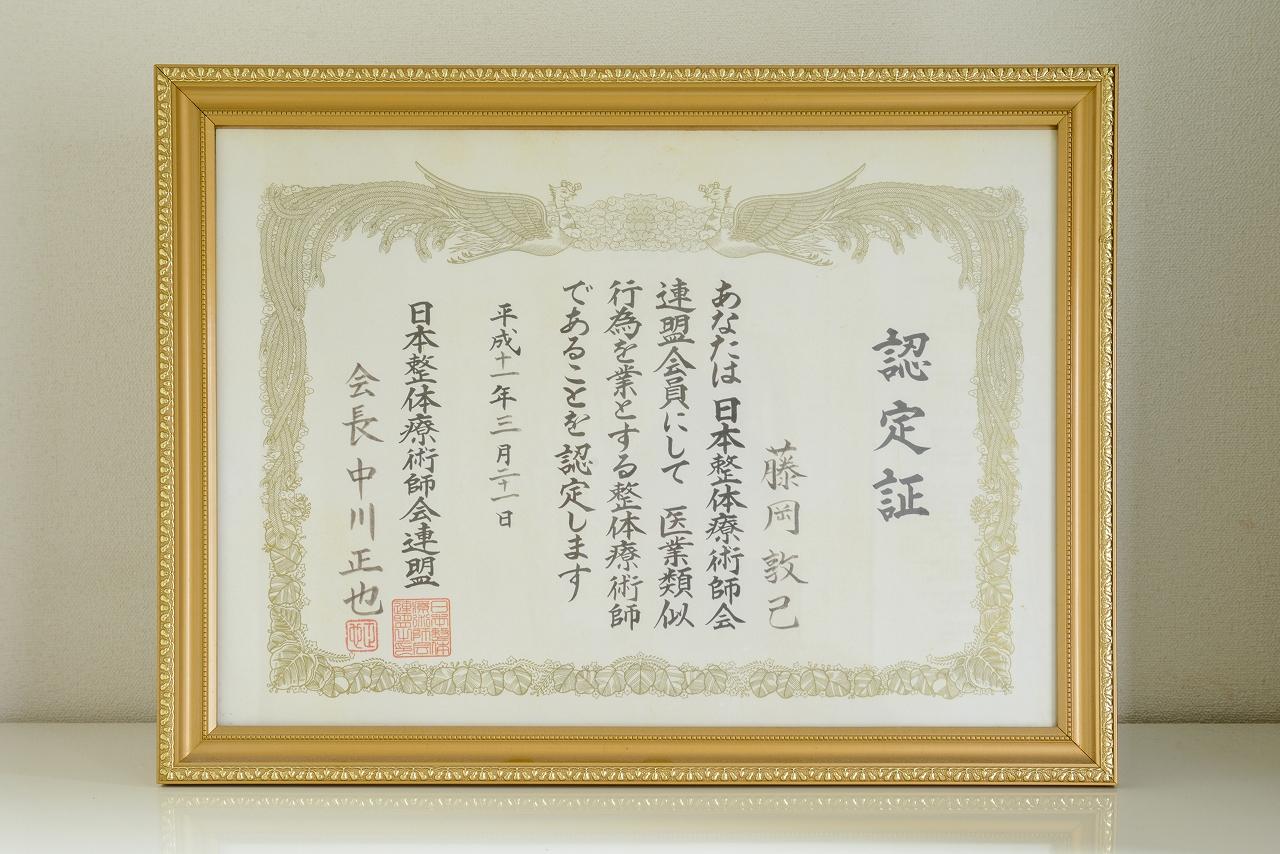 認定証
藤岡敦己
あなたは日本整体療術師会
連盟会員にして 医業類似
行為を業とする整体療術師
であることを認定します
平成十一年三月二十一日
日本整体療術師会連盟
会長 中川正也